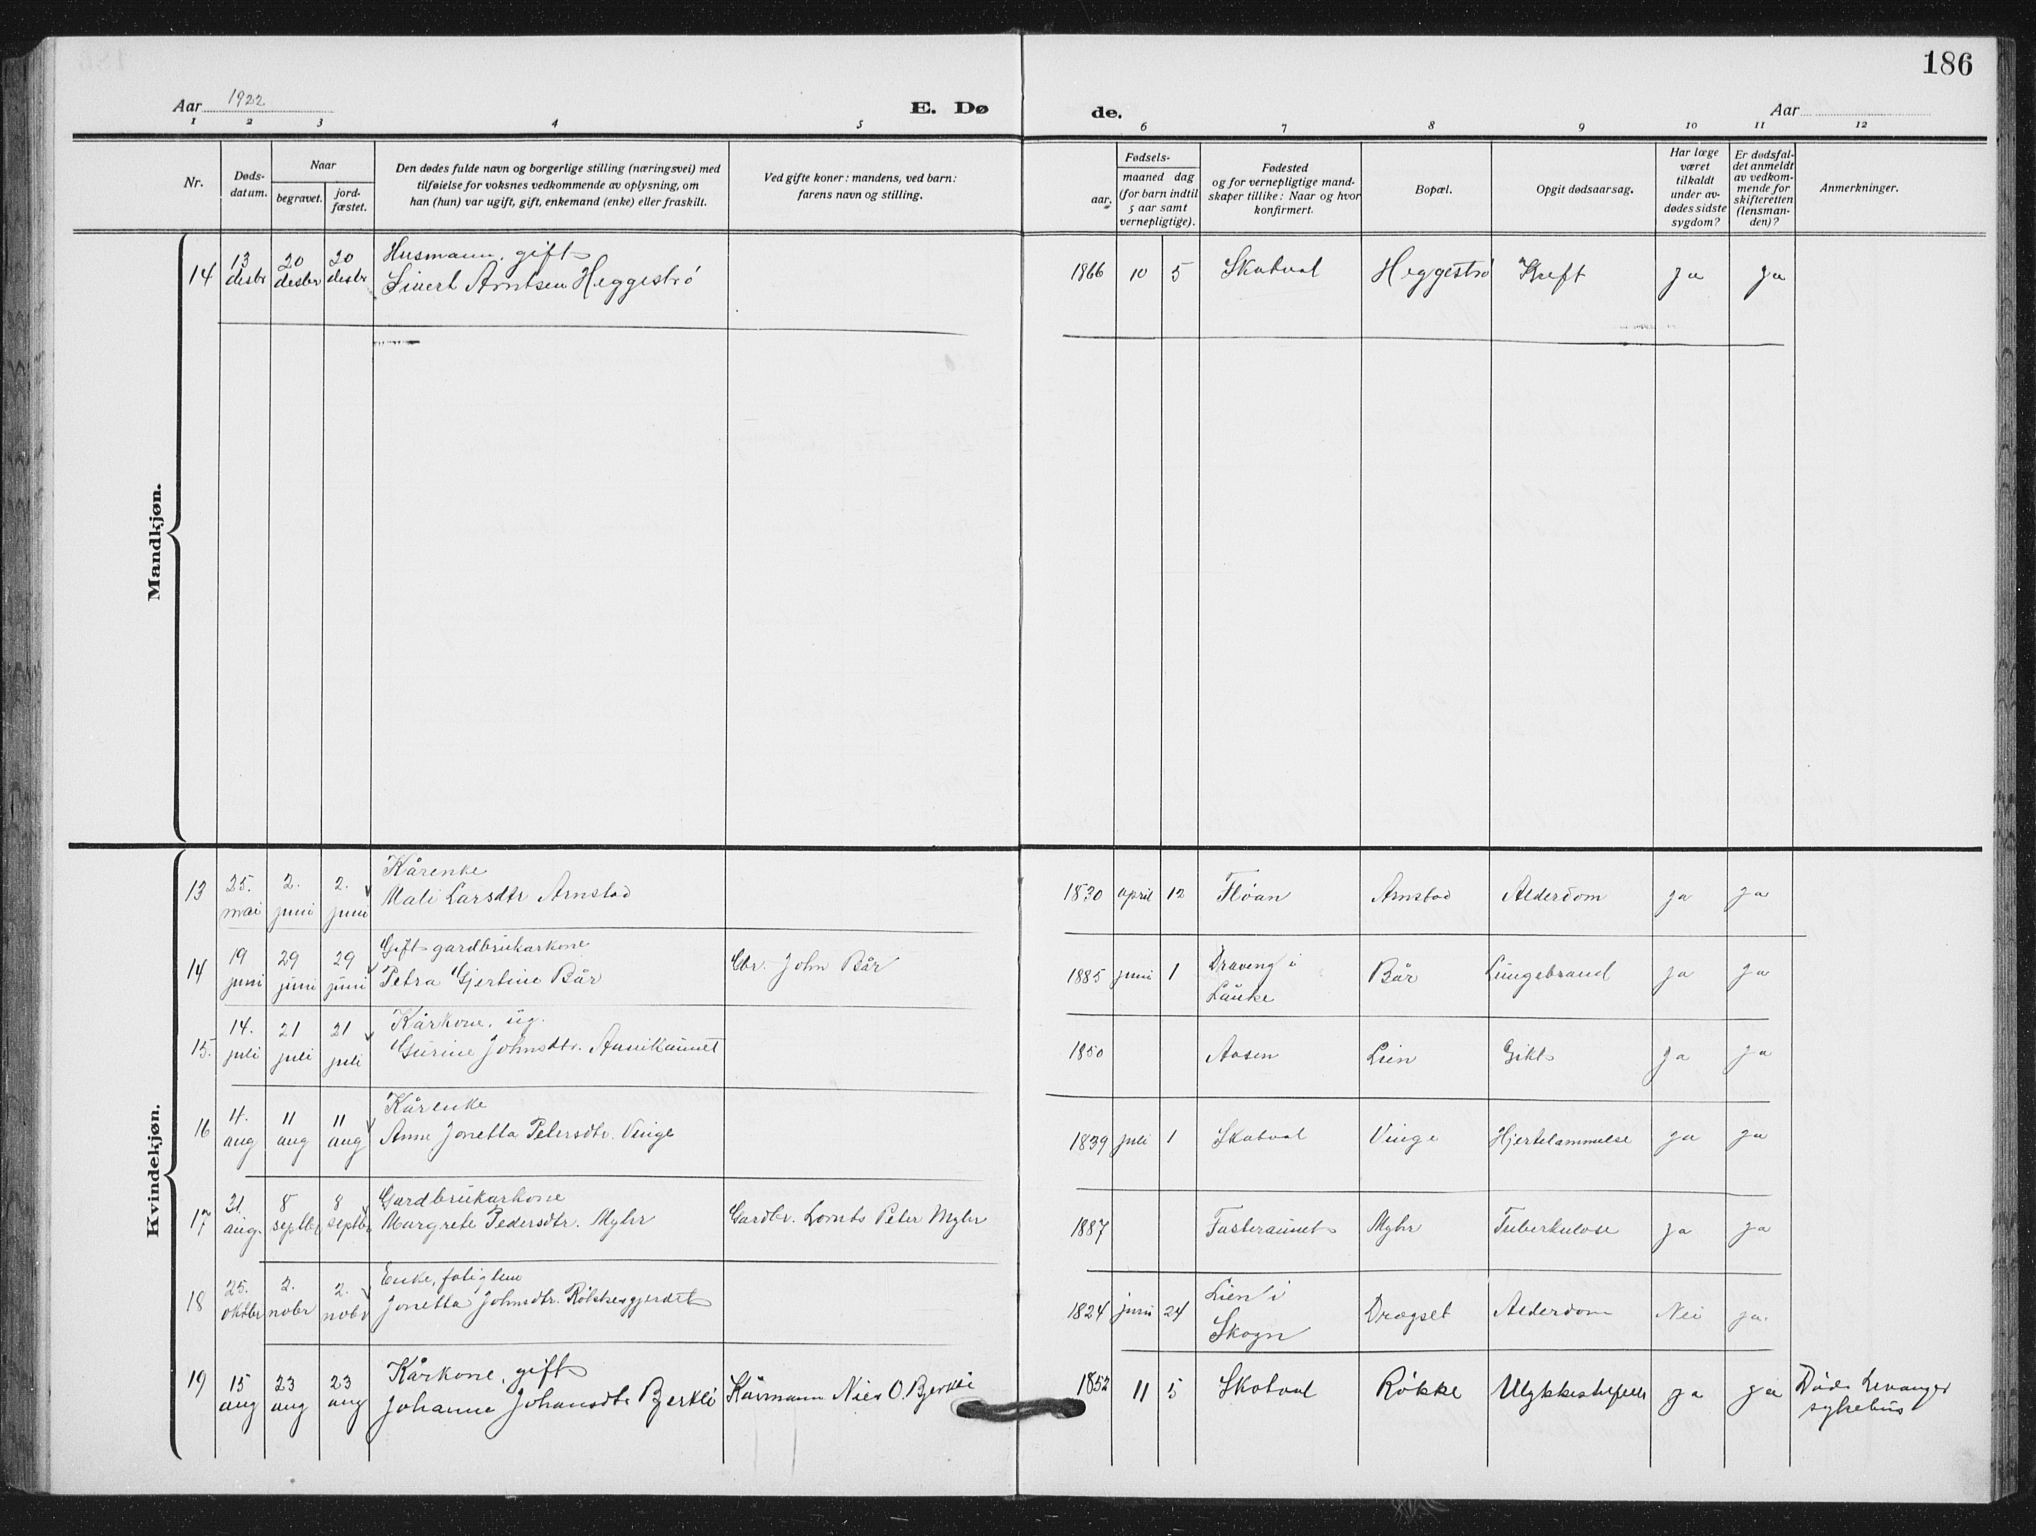 186
Aar 1922
E. Dø
de.
Aar
1 2 3 4 5 6 6 7 8 9 10 11 12
Nr.
Døds-
datum.
Naar
begravet.
jord-
fæstet.
Den dødes fulde navn og borgerlige stilling (næringsvei) med
tilføielse for voksnes vedkommende av oplysning, om
han (hun) var ugift, gift, enkemand (enke) eller fraskilt.
Ved gifte koner: mandens, ved barn:
farens navn og stilling.
Fødsels-
aar.
maaned dag
(for barn indtil
5 aar samt
vernepligtige).
Fødested
og for vernepligtige mand-
skaper tillike: Naar og hvor
konfirmert.
Bopæl.
Opgit dødsaarsag.
Har læge
været
tilkaldt
under av-
dødes sidste
sygdom?
Er dødsfal-
det anmeldt
av vedkom-
mende for
skifteretten
(lensman-
den)?
Anmerkninger.
Mandkjøn.
14 13 desbr 20 desbr 20 desbr Husmann, gift
Sivert Arntsen Heggestrø 1866 10 5 Skatval Heggestrø Kreft ja ja
Kvindekjøn.
13 25. mai 2. juni 2. juni Kårenke
Mali Larsdtr Arnstad 1830 april 12 Fløan Arnstad Alderdom ja ja
14 19 juni 29 juni 29 juni Gift gardbrukarkone
Petra Gjertine Bår Gbr. John Bår 1885 juni 1 Draveng i
Lånke Bår Lungebrand ja ja
15. 14. juli 21 juli 21 juli Kårkone, ug.
Gurine Johnsdtr. 1850 Aasen Lien Gikt ja ja
16 4. aug 11 aug 11 aug Kårenke
Anne Jonetta Petersdtr. Vinge 1839 juli 1 Skatval Vinge Hjertelammelse ja ja
17 21. aug. 8 septbr 8 septbr Gardbrukarkone
Margrete Pedersdtr. Myhr Gardbr. Lornts Peter Myhr 1887 Fasteraunet Myhr Tuberkulose ja ja
18 25. oktbr 2. nobr 2. nobr Enke, fatiglem
Jonetta Johnsdtr. 1824 juni 24 Lien i
Skogn Dragset Alderdom Nei ja.
19 15 aug 23 aug 23 aug Kårkone, gift
Johanne Johansdtr Bjerkli Kårmann Niels O. Bjerkli 1852 11 5 Skatval Røkke Ulykkestilfelle ja ja Døde Levanger
sykehus